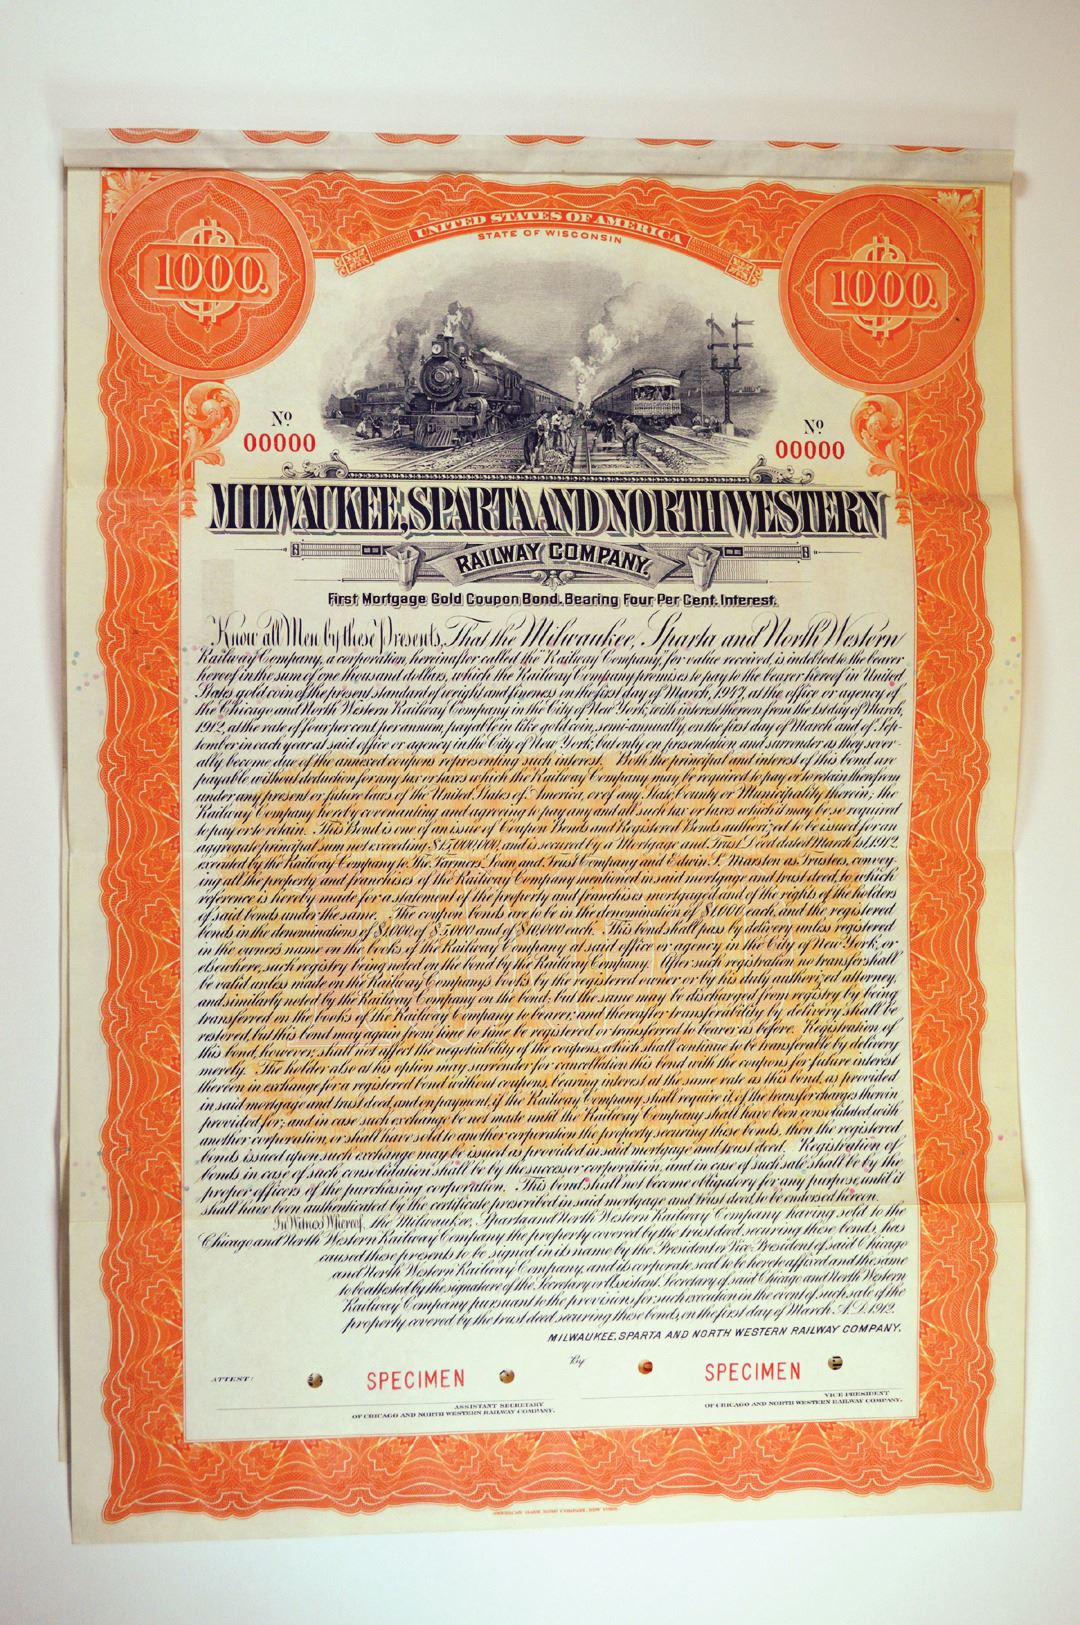 UNITED STATES OF AMERICA
STATE OF WISCONSIN
1000.
1000.
No
00000
No
00000
MILWAUKEE, SPARTA AND NORTH WESTERN
RAILWAY COMPANY.
First Mortgage Gold Coupon Bond, Bearing Four Per Cent. Interest.
Know all Men by these Presents, That the Milwaukee, Sparta and North Western
Railway Company, a corporation, hereinafter called the "Railway Company", for value received, is indebted to the bearer
hereof in the sum of one thousand dollars, which the Railway Company promises to pay to the bearer hereof in United
States gold coin of the present standard of weight and fineness on the first day of March, 1947, at the office or agency of
the Chicago and North Western Railway Company in the City of New York, with interest thereon from the 1st day of March,
1912, at the rate of four per cent per annum, payable in like gold coin, semi-annually, on the first day of March and of Sep-
tember in each year at said office or agency in the City of New York, but only on presentation and surrender as they sever-
ally become due of the annexed coupons representing such interest. Both the principal and interest of this bond are
payable without deduction for any tax or taxes which the Railway Company may be required to pay or to retain therefrom
under any present or future laws of the United States of America, or of any State, County or Municipality therein; the
Railway Company hereby covenanting and agreeing to pay any and all such tax or taxes which it may be so required
to pay or to retain. This Bond is one of an issue of Coupon Bonds and Registered Bonds authorized to be issued for an
aggregate principal sum not exceeding $15,000,000, and is secured by a Mortgage and Trust Deed dated March 1st, 1912,
executed by the Railway Company to The Farmers' Loan and Trust Company and Edwin S. Marston as Trustees, convey-
ing all the property and franchises of the Railway Company mentioned in said mortgage and trust deed, to which
reference is hereby made for a statement of the property and franchises mortgaged and of the rights of the holders
of said bonds under the same. The coupon bonds are to be in the denomination of $1,000 each, and the registered
bonds in the denominations of $1,000, of $5,000 and of $10,000 each. This bond shall pass by delivery unless registered
in the owner's name on the books of the Railway Company at said office or agency in the City of New York, or
elsewhere, such registry being noted on the bond by the Railway Company. After such registration no transfer shall
be valid unless made on the Railway Company's books by the registered owner or by his duly authorized attorney,
and similarly noted by the Railway Company on the bond; but the same may be discharged from registry by being
transferred on the books of the Railway Company to bearer, and thereafter transferability by delivery shall be
restored, but this bond may again from time to time be registered or transferred to bearer as before. Registration of
this bond, however, shall not affect the negotiability of the coupons, which shall continue to be transferable by delivery
merely. The holder also at his option may surrender for cancellation this bond with the coupons for future interest
thereon in exchange for a registered bond without coupons, bearing interest at the same rate as this bond, as provided
in said mortgage and trust deed, and on payment, if the Railway Company shall require it, of the transfer charges therein
provided for; and in case such exchange be not made until the Railway Company shall have been consolidated with
another corporation, or shall have sold to another corporation the property securing these bonds, then the registered
bonds issued upon such exchange may be issued as provided in said mortgage and trust deed. Registration of
bonds in case of such consolidation shall be by the successor corporation, and in case of such sale shall be by the
proper officers of the purchasing corporation. This bond shall not become obligatory for any purpose, until it
shall have been authenticated by the certificate prescribed in said mortgage and trust deed, to be endorsed hereon.
In Witness Whereof, the Milwaukee, Sparta and North Western Railway Company having sold to the
Chicago and North Western Railway Company the property covered by the trust deed securing these bonds, has
caused these presents to be signed in its name by the President or Vice-President of said Chicago
and North Western Railway Company, and its corporate seal to be hereto affixed and the same
to be attested by the signature of the Secretary or Assistant Secretary of said Chicago and North Western
Railway Company pursuant to the provisions for such execution in the event of such sale of the
property covered by the trust deed securing these bonds, on the first day of March, A.D. 1912.
MILWAUKEE, SPARTA AND NORTH WESTERN RAILWAY COMPANY,
By
ATTEST:
SPECIMEN
SPECIMEN
ASSISTANT SECRETARY
OF CHICAGO AND NORTH WESTERN RAILWAY COMPANY.
VICE PRESIDENT
OF CHICAGO AND NORTH WESTERN RAILWAY COMPANY.
AMERICAN BANK NOTE COMPANY, NEW YORK.